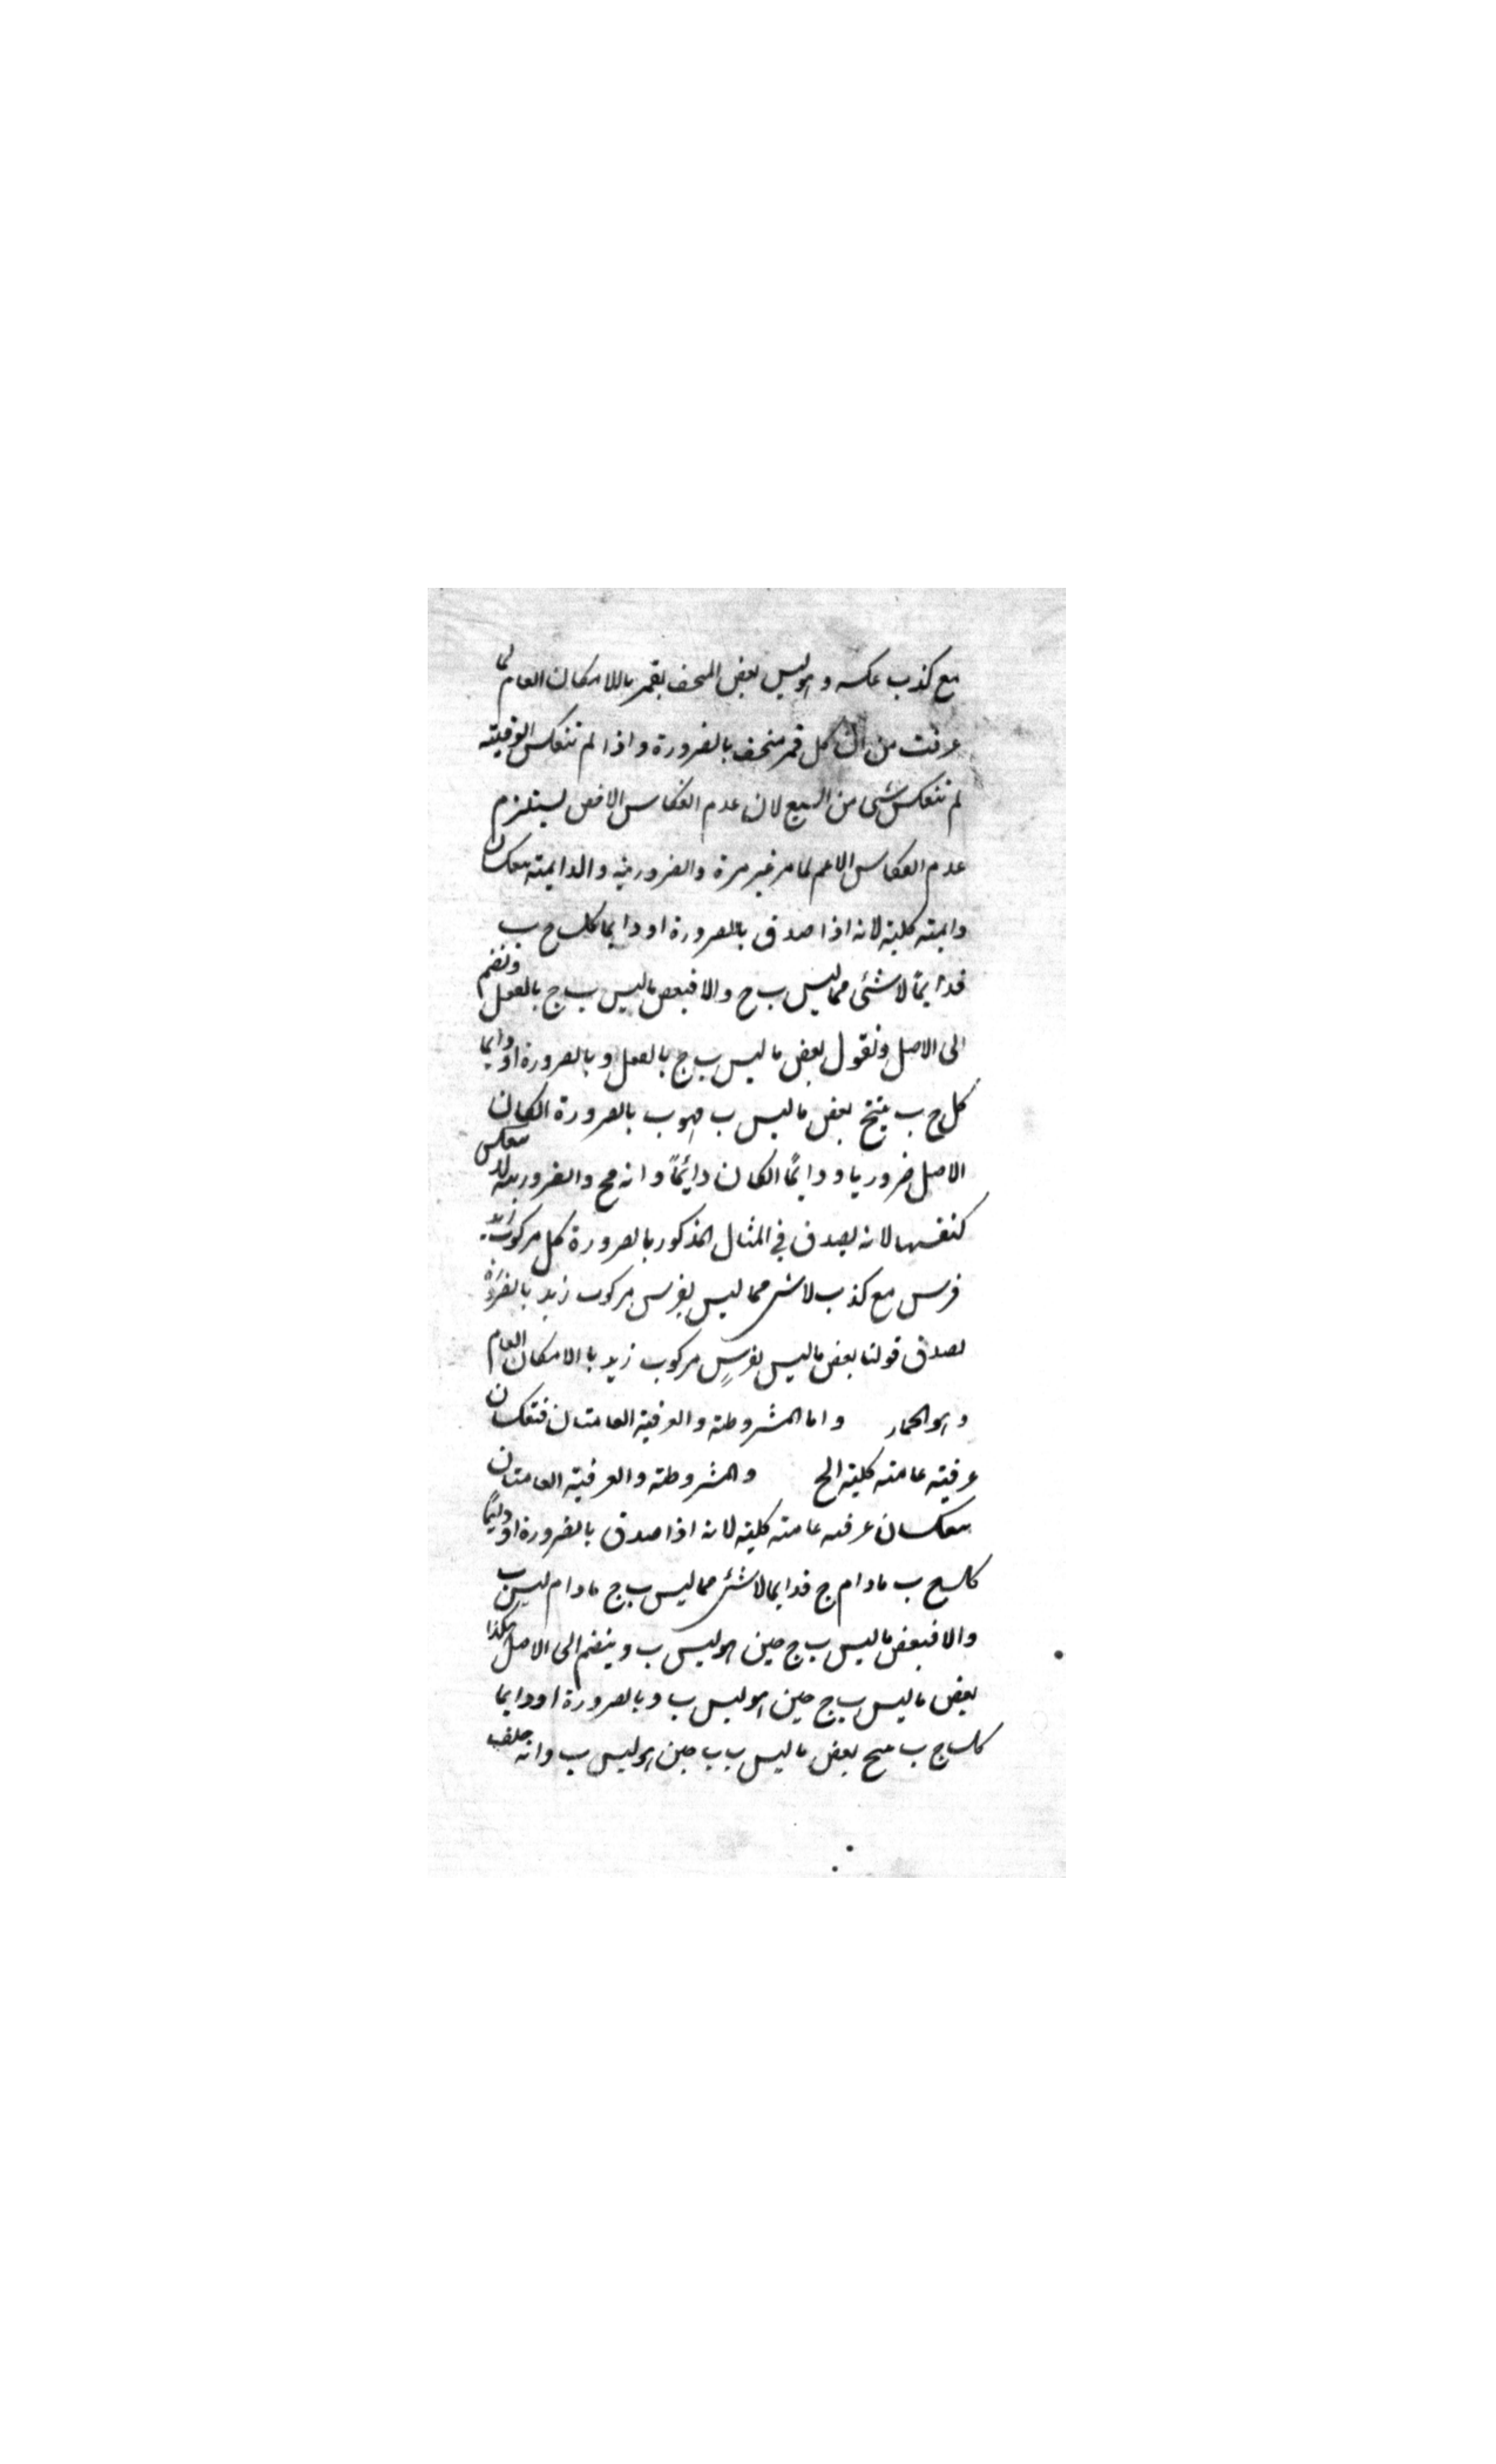 مع كذب عكسه وهو ليس بعض المنخسف بقمر باللامكان العام لما
عرفت من ان كل قمر منخسف بالضرورة واذا لم تنعكس الوقتية
لم تنعكس شئ من السبع لان عدم انعكاس الاخص يستلزم
عدم انعكاس الاعم لما مر غير مرة والضرورية والدايمة تنعكسان
دايمة كلية لانه اذا صدق بالضرورة او دايما كل ج ب
فدايمًا لا شئ مما ليس ب ج والا فبعض ما ليس ب ج بالفعل ونضم
الى الاصل ونقول بعض ما ليس ب ج بالفعل و بالضرورة او دايما
كل ج ب ينتج بعض ما ليس ب فهو ب بالضرورة ان كان
الاصل ضروريا و دايمًا ان كان دائمًا وانه مح والضرورية لا تنعكس
كنفسها لانه يصدق في المثال المذكور بالضرورة كل مركوب زيد
فرس مع كذب لا شئ مما ليس بفرس مركوب زيد بالضرورة
لصدق قولنا بعض ما ليس بفرسٍ مركوب زيد با الامكان العام
وهو الحمار واما المشروطة والعرفية العامتان فتنعكسان
عرفية عامة كلية الخ والمشروطة والعرفية العامتان
تنعكسان عرفية عامة كلية لانه اذا صدق بالضرورة او دايمًا
كل ج ب مادام ج فدايما لا شئ مما ليس ب ج مادام ليس ب
والا فبعض ما ليس ب ج حين هو ليس ب وينضم الى الاصل هكذا
بعض ما ليس ب ج حين هو ليس ب وبالضرورة او دايما
كل ج ب ينتج بعض ما ليس ب ب حين هو ليس ب وانه خلف